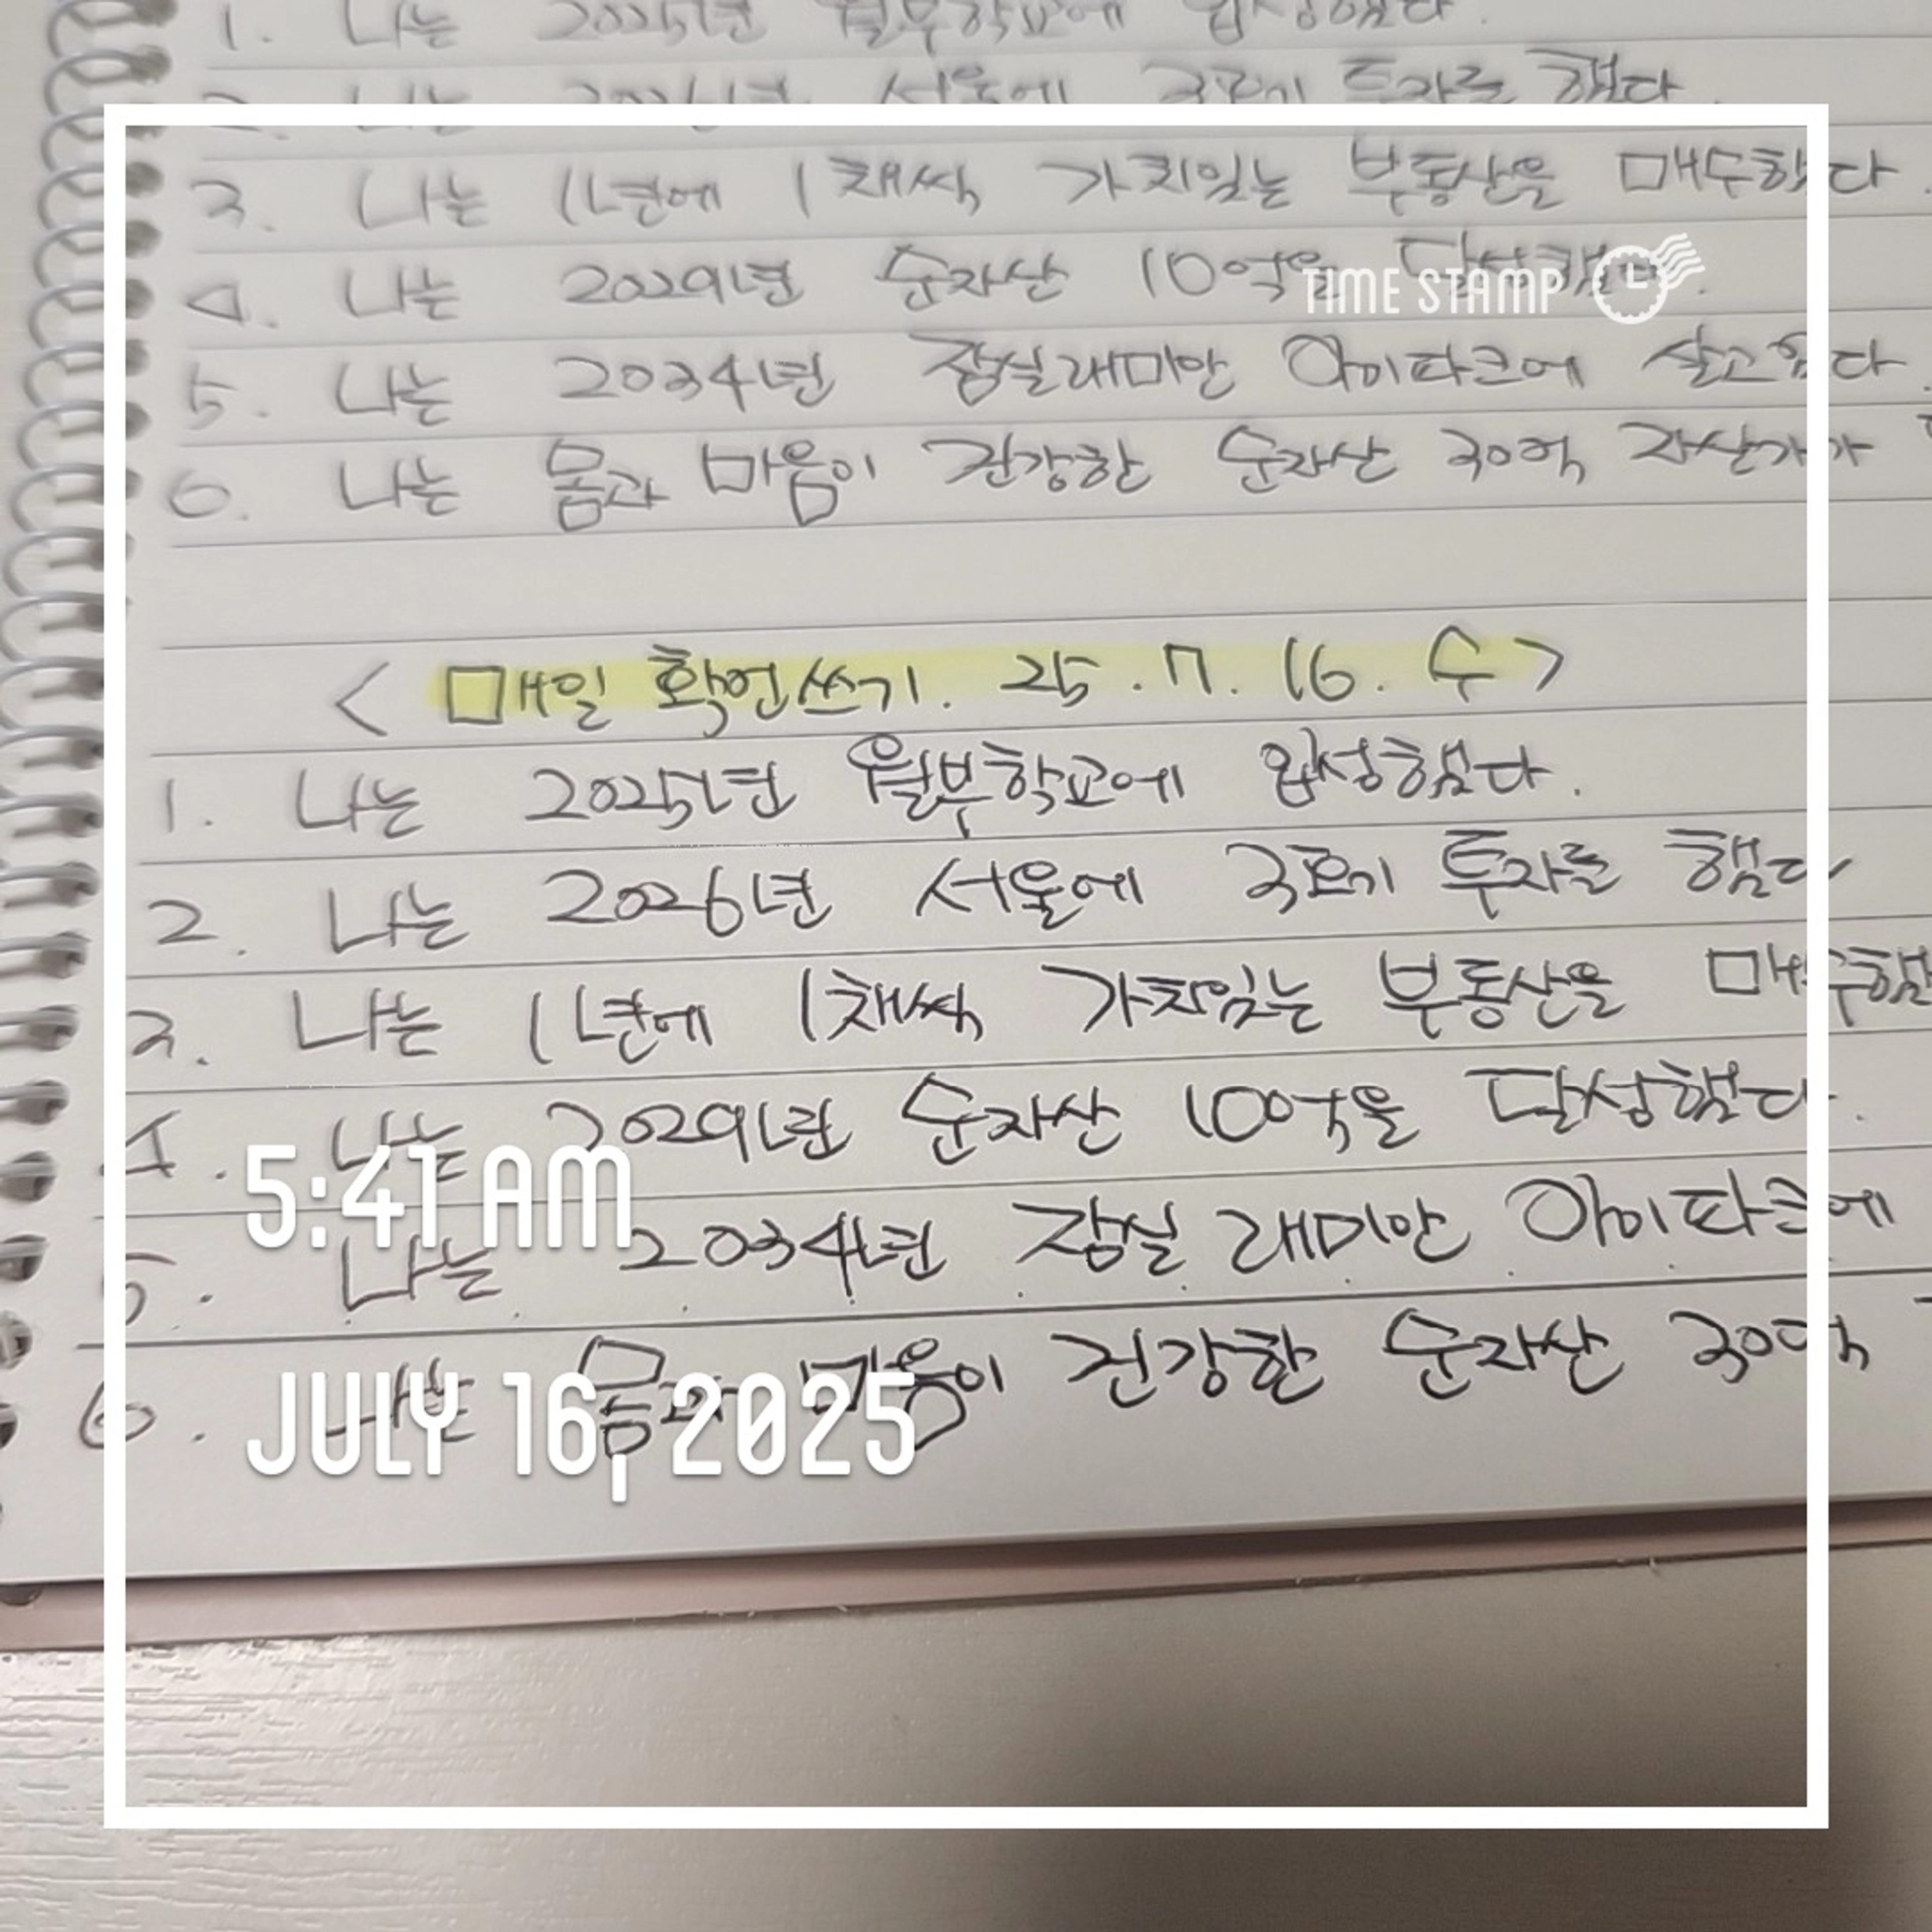 1. 나는 2025년 월부학교에 입성했다.
2. 나는 2026년 서울에 3호기 투자를 했다.
3. 나는 1년에 1채씩 가치있는 부동산을 매수했다.
4. 나는 2029년 순자산 10억을 달성했다.
TIME STAMP
5. 나는 2034년 잠실래미안 아이파크에 살고있다.
6. 나는 몸과 마음이 건강한 순자산 30억 자산가가
< 매일 확언쓰기. 25. 7. 16. 수 >
1. 나는 2025년 월부학교에 입성했다.
2. 나는 2026년 서울에 3호기 투자를 했다
3. 나는 1년에 1채씩 가치있는 부동산을 매수했
4. 나는 2029년 순자산 10억을 달성했다.
5:41 AM
5. 나는 2034년 잠실 래미안 아이파크에
6. 나는 몸과 마음이 건강한 순자산 30억
JULY 16, 2025